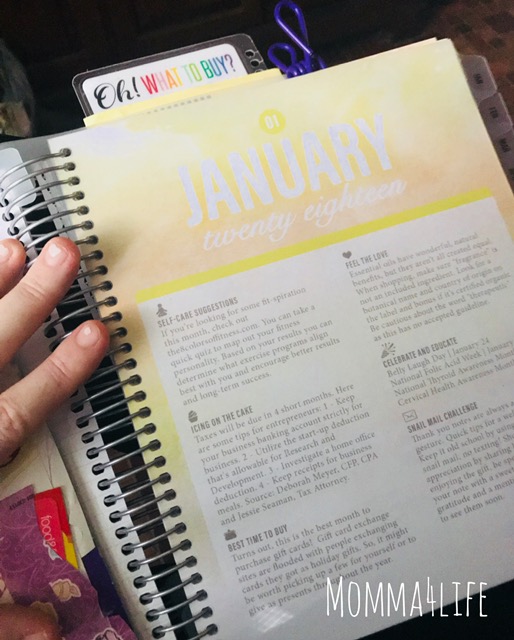 Oh! WHAT TO BUY?
01
JANUARY
twenty eighteen
SELF-CARE SUGGESTIONS
If you're looking for some fit-spiration
this month, check out
the8colorsoffitness.com. You can take a
quick quiz to map out your fitness
personality. Based on your results, you can
determine what exercise programs align
best with you and encourage better results
and long term success.
ICING ON THE CAKE
Taxes will be due in 4 short months. Here
are some tips for entrepreneurs. 1 - Keep
your business banking account strictly for
business. 2 - Utilize the start-up deduction
that's allowable for Research and
Development. 3 - Investigate a home office
deduction. 4 - Keep receipts for business
meals. Source: Deborah Meyer, CFP, CPA
and Jessie Seaman, Tax Attorney.
BEST TIME TO BUY
Turns out, this is the best month to
purchase gift cards! Gift card exchange
sites are flooded with people exchanging
cards they got as holiday gifts. So, it might
be worth picking up a few for yourself or to
give as presents throughout the year.
FEEL THE LOVE
Essential oils have wonderful, natural
benefits, but they aren't all created equal.
When shopping, make sure "fragrance" is
not an included ingredient. Look for a
botanical name and country of origin on
the label and bonus if it's certified organic.
Be cautious about the word "therapeutic"
as this has no accepted guideline.
CELEBRATE AND EDUCATE
Belly Laugh Day | January 24
National Folic Acid Week | January
National Thyroid Awareness Month
Cervical Health Awareness Month
SNAIL MAIL CHALLENGE
Thank you notes are always a
gesture. Quick tips for a
Keep it old school by
snail mail, no texting!
appreciation by sharing
enjoying the gift, be
your note with a
gratitude and a
to see them soon.
food
MOMMA4LIFE